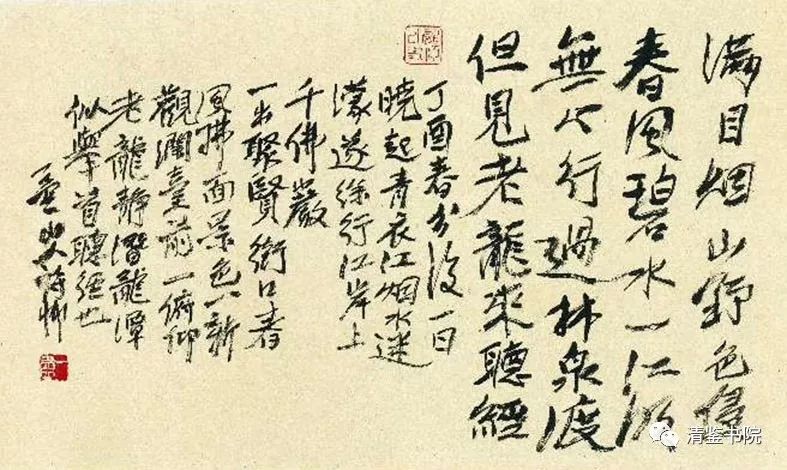 滿目烟山野色
春風碧水一江
無人行過林泉渡
但見老龍來聽經
丁酉春分後一日
曉起青衣江烟水迷
濛遂徐行江岸上
千佛巖
一出聚賢街口春
風拂面景色一新
觀瀾臺前一俯仰
老龍静潛龍潭
似舉首聽經也
清鉴书院